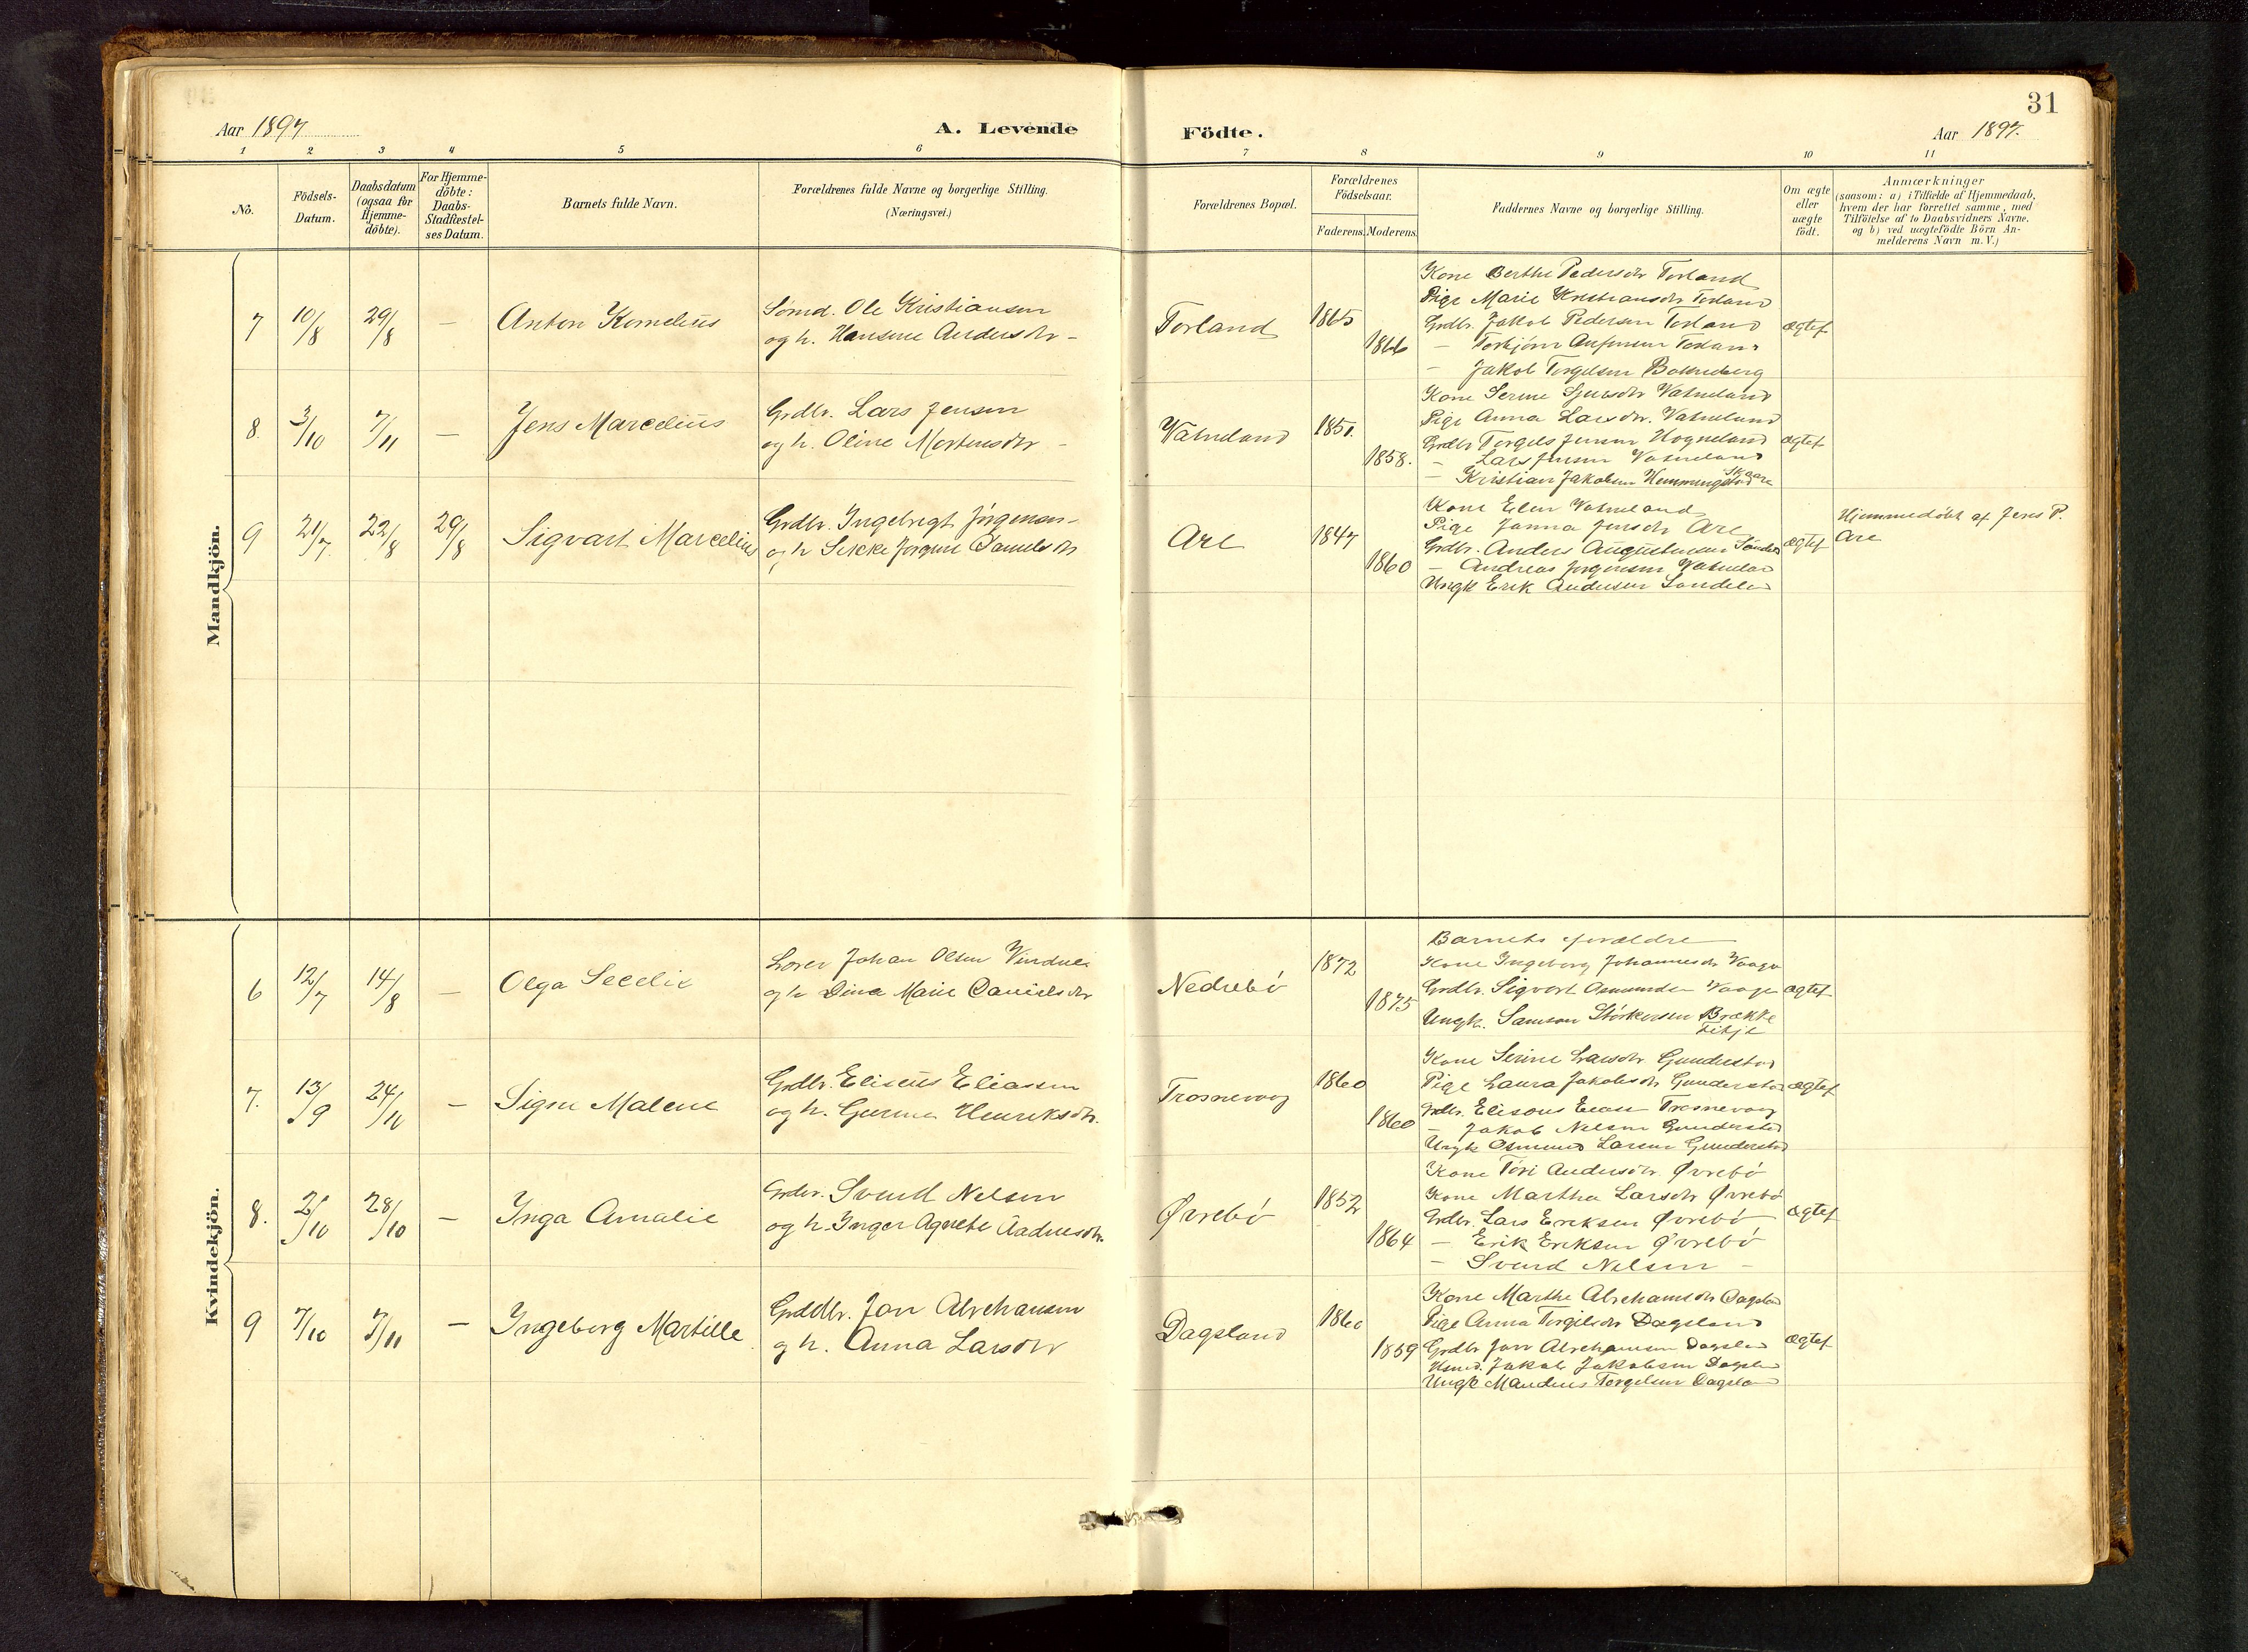 31
Aar 1897
A. Levende
Födte.
Aar 1897.
1 2 3 4 5 6 7 8 9 10 11
No.
Födsels-
Datum.
Daabsdatum
(ogsaa for
Hjemme-
döbte).
For Hjemme-
döbte:
Daabs-
Stadfæstel-
ses Datum.
Barnets fulde Navn.
Forældrenes fulde Navne og borgerlige Stilling.
(Næringsvei.)
Forældrenes Bopæl.
Forældrenes
Födselsaar.
Faderens.
Moderens.
Faddernes Navne og borgerlige Stilling.
Om ægte
eller
uægte
født.
Anmærkninger
(saasom: a) i Tilfælde af Hjemmedaab,
hvem der har forrettet samme, med
Tilföielse af to Daabsvidners Navne,
og b) ved uægtefödte Börn An-
melderens Navn m.V.)
Mandkjön.
7 10/8 29/8 — Anton Kornelius
Sömd. Ole Kristiansen
og h. Hansine Andersdtr -
Torland
1865
1866
Kone Berthe Pedersdtr Torland
Pige Marie Kristiansdtr Torland
Grdbr. Jakob Pedersen Torland
— Torbjörn Torland
— Jakob Torgelsen
ægtef
8. 3/10 7/11 — Jens Marcelius
Grdbr. Lars Jensen
og h. Oline Mortensdtr -
Vatneland
1851.
1858.
Kone Serine Vatneland
Pige Anna Larsdtr. Vatneland
Grdbr Torgels Jensen Hogneland
— Lars Jensen Vatneland
— Kristian Jakobsen Skaare
ægtef
9 21/7. 22/8 29/8 Sigvart Marcelius
Grdbr. Ingebregt Jörgensen-
og h Jörgine Danielsdtr
Are
1847
1860
Kone Elen Vatneland
Pige Janna Jensdtr Are
Grdbr. Anders Augustinsen
— Andreas Jörgensen Vatneland
Ungk Erik Andersen
ægtef
Hjemmedöbt af Jens P.
Are
Kvindekjön.
6 12/7 14/8 — Olga Secelie
Lærer Johan Olsen
og h Dina Marie Danielsdtr
Nedrebö
1872
1875
Barnets forældre
Kone Ingeborg Johannesdtr Vaage
Grdbr. Sigvart Osmundsen Vaage
Ungk. Samson Störkersen Brække
ægtef
7. 13/9 24/10 — Signe Malene
Grdbr. Eliseus Eliassen
og h. Gurine Henriksdtr.
Trosnevaag
1860
1860
Kone Serine Larsdtr Gunderstad
Pige Laura Jakobsdtr Gunderstad
Grdbr. Trosnevaag
— Jakob Nelsen Gunderstad
Ungk Osmund Larsen Gunderstad
ægtef
8. 2/10 28/10 — Inga Amalie
Grdbr. Svend Nelsen
og h. Inger Agnete Aadnesdtr.
Øvrebö
1852
1864
Kone Töri Andersdtr. Øvrebö
Kone Martha Larsdtr Øvrebö
Grdbr. Lars Eriksen Øvrebö
— Erik Eriksen Øvrebö
— Svend Nelsen —
ægtef
9 7/10 7/11 — Ingeborg Martille
Grddbr. Jon Abrehamsen
og h. Anna Larsdtr
Dagsland
1860
1859
Kone Marthe Abrehamsdtr Dagsland
Pige Anna Torgilsdtr Dagsland
Grdbr Jon Abrehamsen Dagsland
Husmd. Jakob Jakobsen Dagsland
Ungk Mandius Torgelsen Dagsland
ægtef